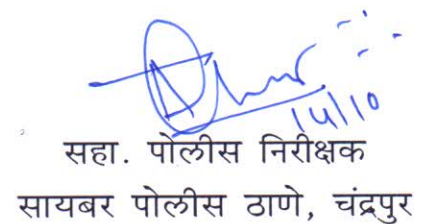 14/10
सहा. पोलीस निरीक्षक
सायबर पोलीस ठाणे, चंद्रपुर